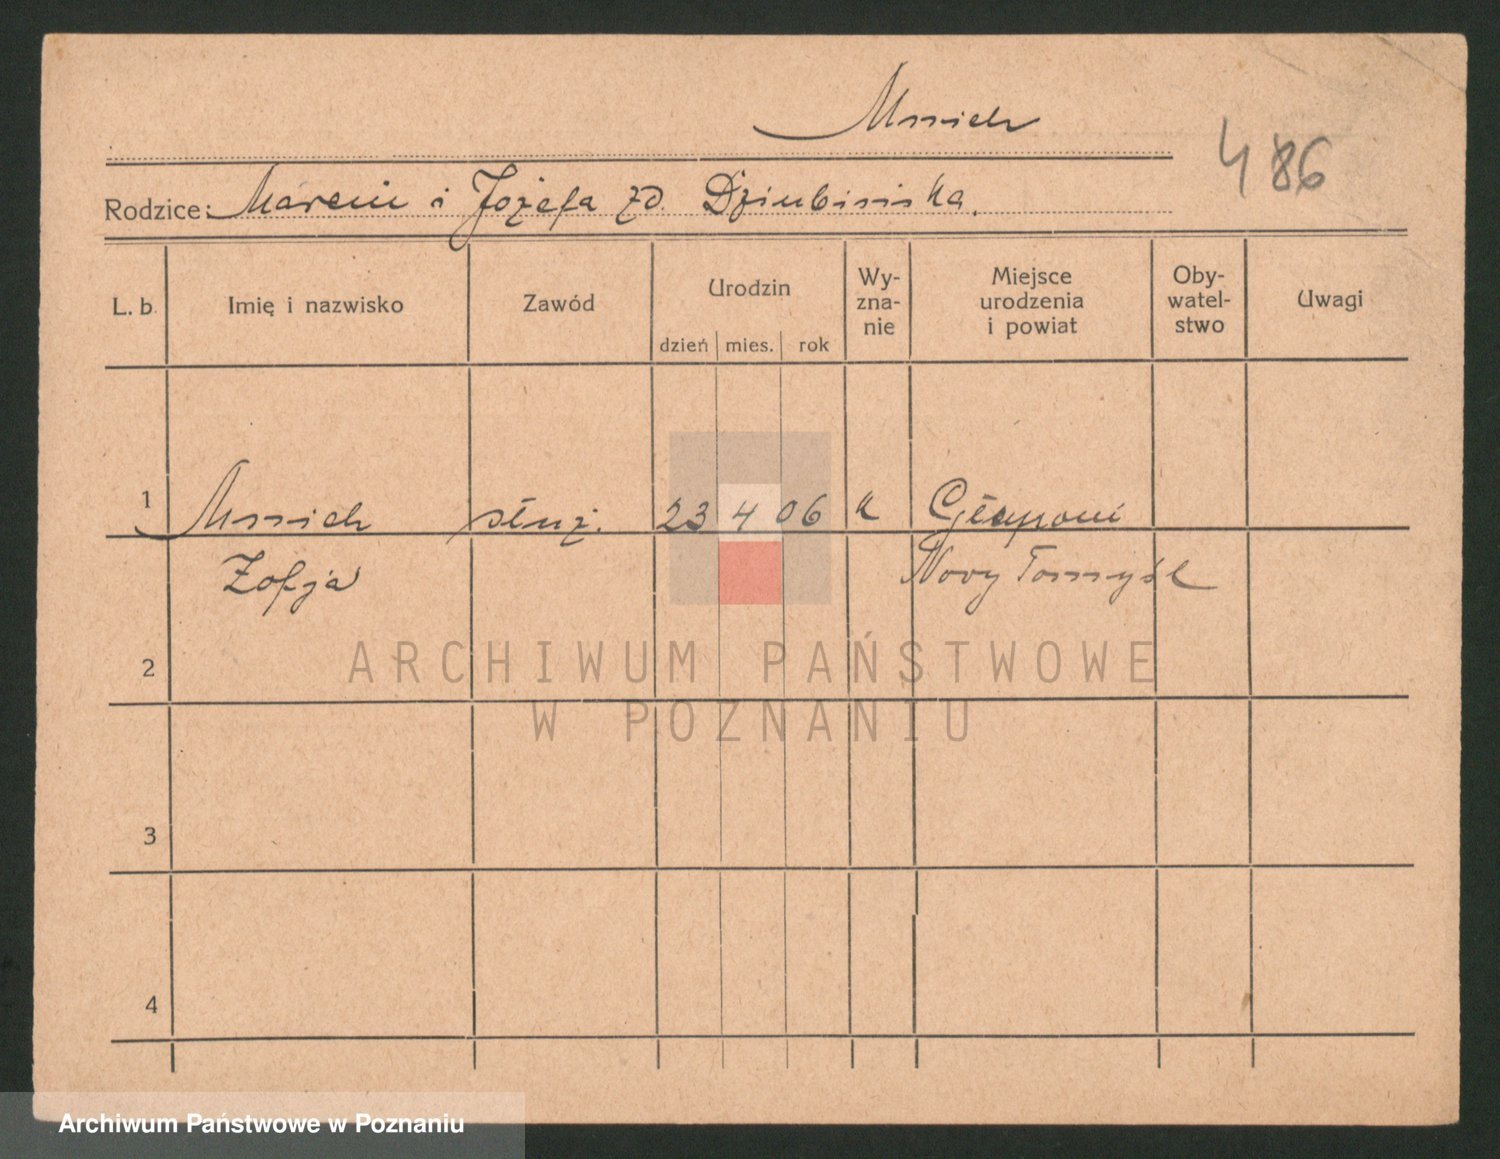 Mnich
486
Rodzice: Marcin i Józefa zd. Dziubińska.
L. b. Imię i nazwisko Zawód Urodzin Wy-zna-nie Miejsce urodzenia i powiat Oby-watel-stwo Uwagi
dzień mies. rok
1 Mnich służ. 23 4 06 k
Zofja Nowy Tomyśl
2
ARCHIWUM PAŃSTWOWE
W POZNANIU
3
4
Archiwum Państwowe w Poznaniu